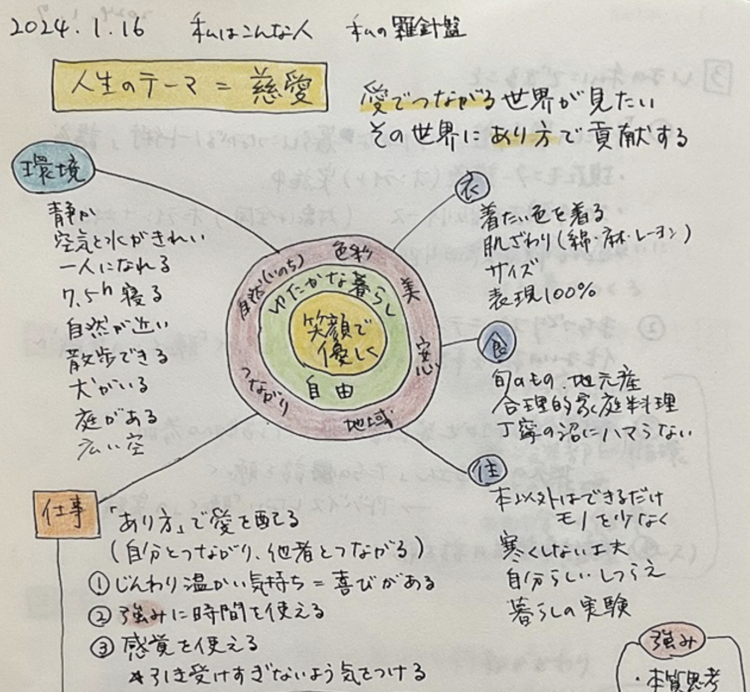 2024.1.16 私はこんな人 私の羅針盤
人生のテーマ = 慈愛
愛でつながる世界が見たい
その世界にあり方で貢献する
環境
静か
空気と水がきれい
一人になれる
7.5h 寝る
自然が近い
散歩できる
犬がいる
庭がある
広い空
色彩
自然(いのち)
美
ゆたかな暮らし
笑顔で
優しく
自由
つながり
安心
地域
衣
着たい色を着る
肌ざわり(綿・麻・レーヨン)
サイズ
表現100%
食
旬のもの、地元産
合理的家庭料理
丁寧の沼にハマらない
住
本以外はできるだけ
モノを少なく
寒くしない工夫
自分らしいしつらえ
暮らしの実験
仕事
「あり方」で愛を配る
(自分とつながり、他者とつながる)
①じんわり温かい気持ち=喜びがある
②強みに時間を使える
③感覚を使える
*引き受けすぎないよう気をつける
強み
・本質思考